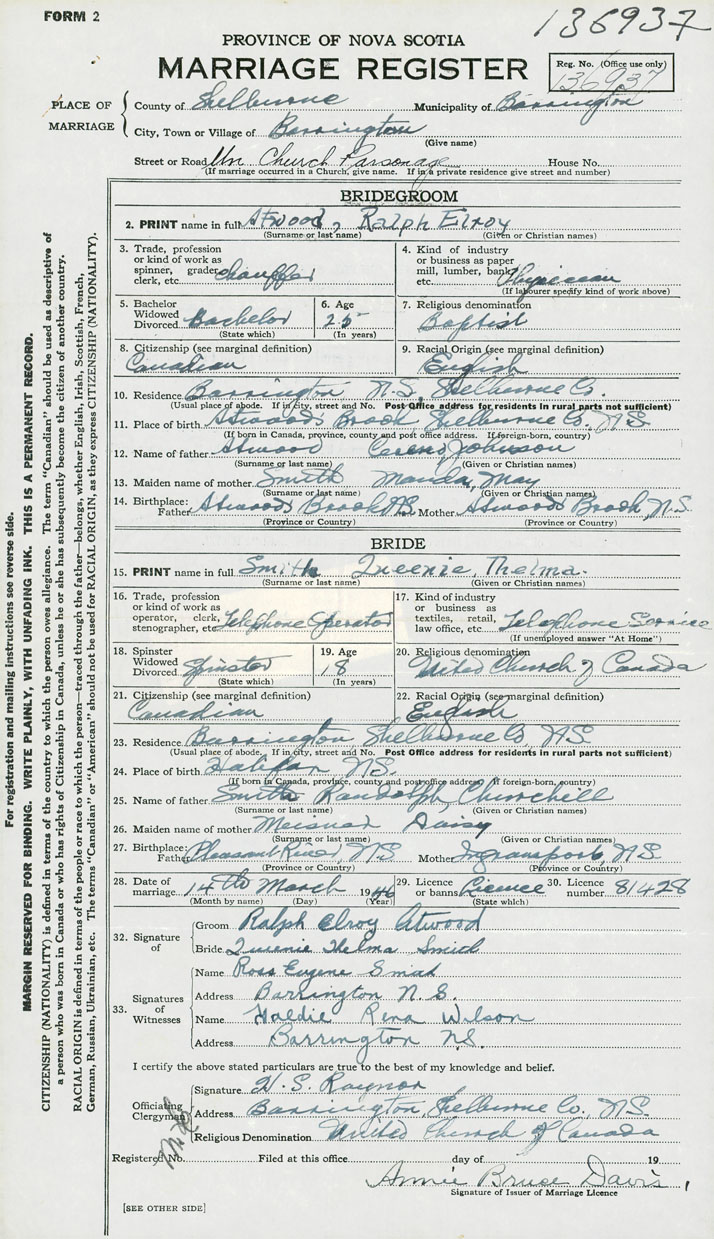 FORM 2
136937
PROVINCE OF NOVA SCOTIA
MARRIAGE REGISTER
Reg. No. (Office use only)
136937
PLACE OF MARRIAGE
County of Shelburne Municipality of Barrington
City, Town or Village of Barrington
(Give name)
Street or Road Un Church Parsonage House No.
(If marriage occurred in a Church, give name. If in a private residence give street and number)
BRIDEGROOM
2. PRINT name in full Atwood, Ralph Elroy
(Surname or last name) (Given or Christian names)
3. Trade, profession or kind of work as spinner, grader, clerk, etc. Chauffer
4. Kind of industry or business as paper mill, lumber, bank, etc. Physician
(If labourer specify kind of work above)
5. Bachelor Widowed Divorced Bachelor
(State which)
6. Age 25
(In years)
7. Religious denomination
Baptist
8. Citizenship (see marginal definition)
Canadian
9. Racial Origin (see marginal definition)
English
10. Residence Barrington N.S. Shelburne Co.
(Usual place of abode. If in city, street and No. Post Office address for residents in rural parts not sufficient)
11. Place of birth Atwoods Brook Shelburne Co. N.S.
(If born in Canada, province, county and post office address. If foreign-born, country)
12. Name of father Atwood Johnson
(Surname or last name) (Given or Christian names)
13. Maiden name of mother Smith Manda, May
(Surname or last name) (Given or Christian names)
14. Birthplace: Father Atwoods Brook N.S. Mother Atwoods Brook, N.S.
(Province or Country) (Province or Country)
BRIDE
15. PRINT name in full Smith Queenie, Thelma.
(Surname or last name) (Given or Christian names)
16. Trade, profession or kind of work as operator, clerk, stenographer, etc. Telephone Operator
17. Kind of industry or business as textiles, retail, law office, etc. Telephone Service
(If unemployed answer "At Home")
18. Spinster Widowed Divorced Spinster
(State which)
19. Age 18
(In years)
20. Religious denomination
United Church of Canada
21. Citizenship (see marginal definition)
Canadian
22. Racial Origin (see marginal definition)
English
23. Residence Barrington, Shelburne Co, N.S.
(Usual place of abode. If in city, street and No. Post Office address for residents in rural parts not sufficient)
24. Place of birth Halifax N.S.
(If born in Canada, province, county and post office address. If foreign-born, country)
25. Name of father Smith Randolph Churchill
(Surname or last name) (Given or Christian names)
26. Maiden name of mother Meisner Daisy
(Surname or last name) (Given or Christian names)
27. Birthplace: Father Pleasant River, N.S. Mother Ingramport, N.S.
(Province or Country) (Province or Country)
28. Date of marriage 14th March 1946
(Month by name) (Day) (Year)
29. Licence or banns Licence
(State which)
30. Licence number 81428
32. Signature of
Groom Ralph Elroy Atwood
Bride Queenie Thelma Smith
33. Signatures of Witnesses
Name Ross Eugene Smith
Address Barrington N.S.
Name Haldie Rena Wilson
Address Barrington N.S.
I certify the above stated particulars are true to the best of my knowledge and belief.
Officiating Clergyman
Signature H. S. Raynor
Address Barrington, Shelburne Co. N.S.
Religious Denomination United Church of Canada
Registered No. Filed at this office day of 19
Annie Bruse Davis,
Signature of Issuer of Marriage Licence
[SEE OTHER SIDE]
For registration and mailing instructions see reverse side.
MARGIN RESERVED FOR BINDING. WRITE PLAINLY, WITH UNFADING INK. THIS IS A PERMANENT RECORD.
CITIZENSHIP (NATIONALITY) is defined in terms of the country to which the person owes allegiance. The term "Canadian" should be used as descriptive of
a person who was born in Canada or who has rights of Citizenship in Canada, unless he or she has subsequently become the citizen of another country.
RACIAL ORIGIN is defined in terms of the people or race to which the person—traced through the father—belongs, whether English, Irish, Scottish, French,
German, Russian, Ukrainian, etc. The terms "Canadian" or "American" should not be used for RACIAL ORIGIN, as they express CITIZENSHIP (NATIONALITY).